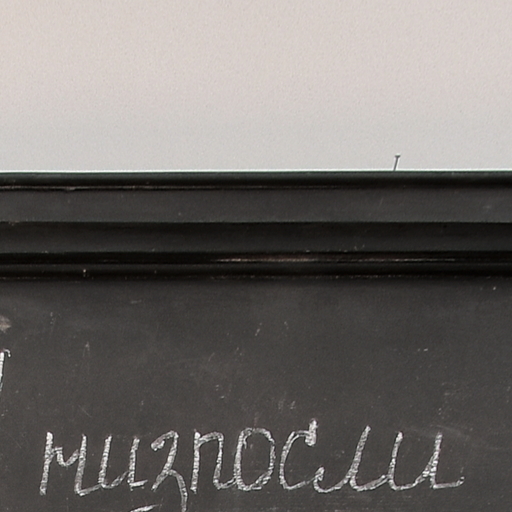 низпосли